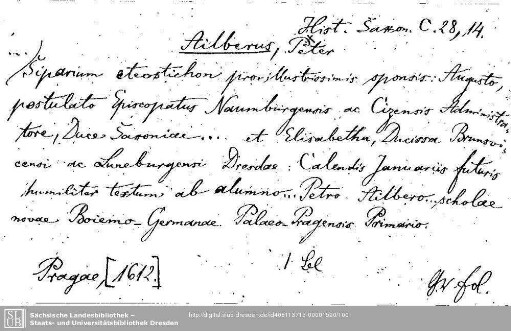 Hist. Saxon. C. 28, 14.
Ailberus, Peter
Siparium eteostichon pro illustrissimis sponsis: Augusto,
postulato Episcopatus Naumburgensis ac Cizensis Administra-
tore, Duce Saxoniae... et Elisabetha, Ducissa Brunsvi-
censi ac Luneburgensi Dresdae: Calendis Januariis futuris
humiliter textum ab alumno... Petro Ailbero... scholae
novae Boiemo-Germanae Palaeo-Pragensis Primario.
Pragae, [1612.]
fol.
Sächsische Landesbibliothek –
Staats- und Universitätsbibliothek Dresden